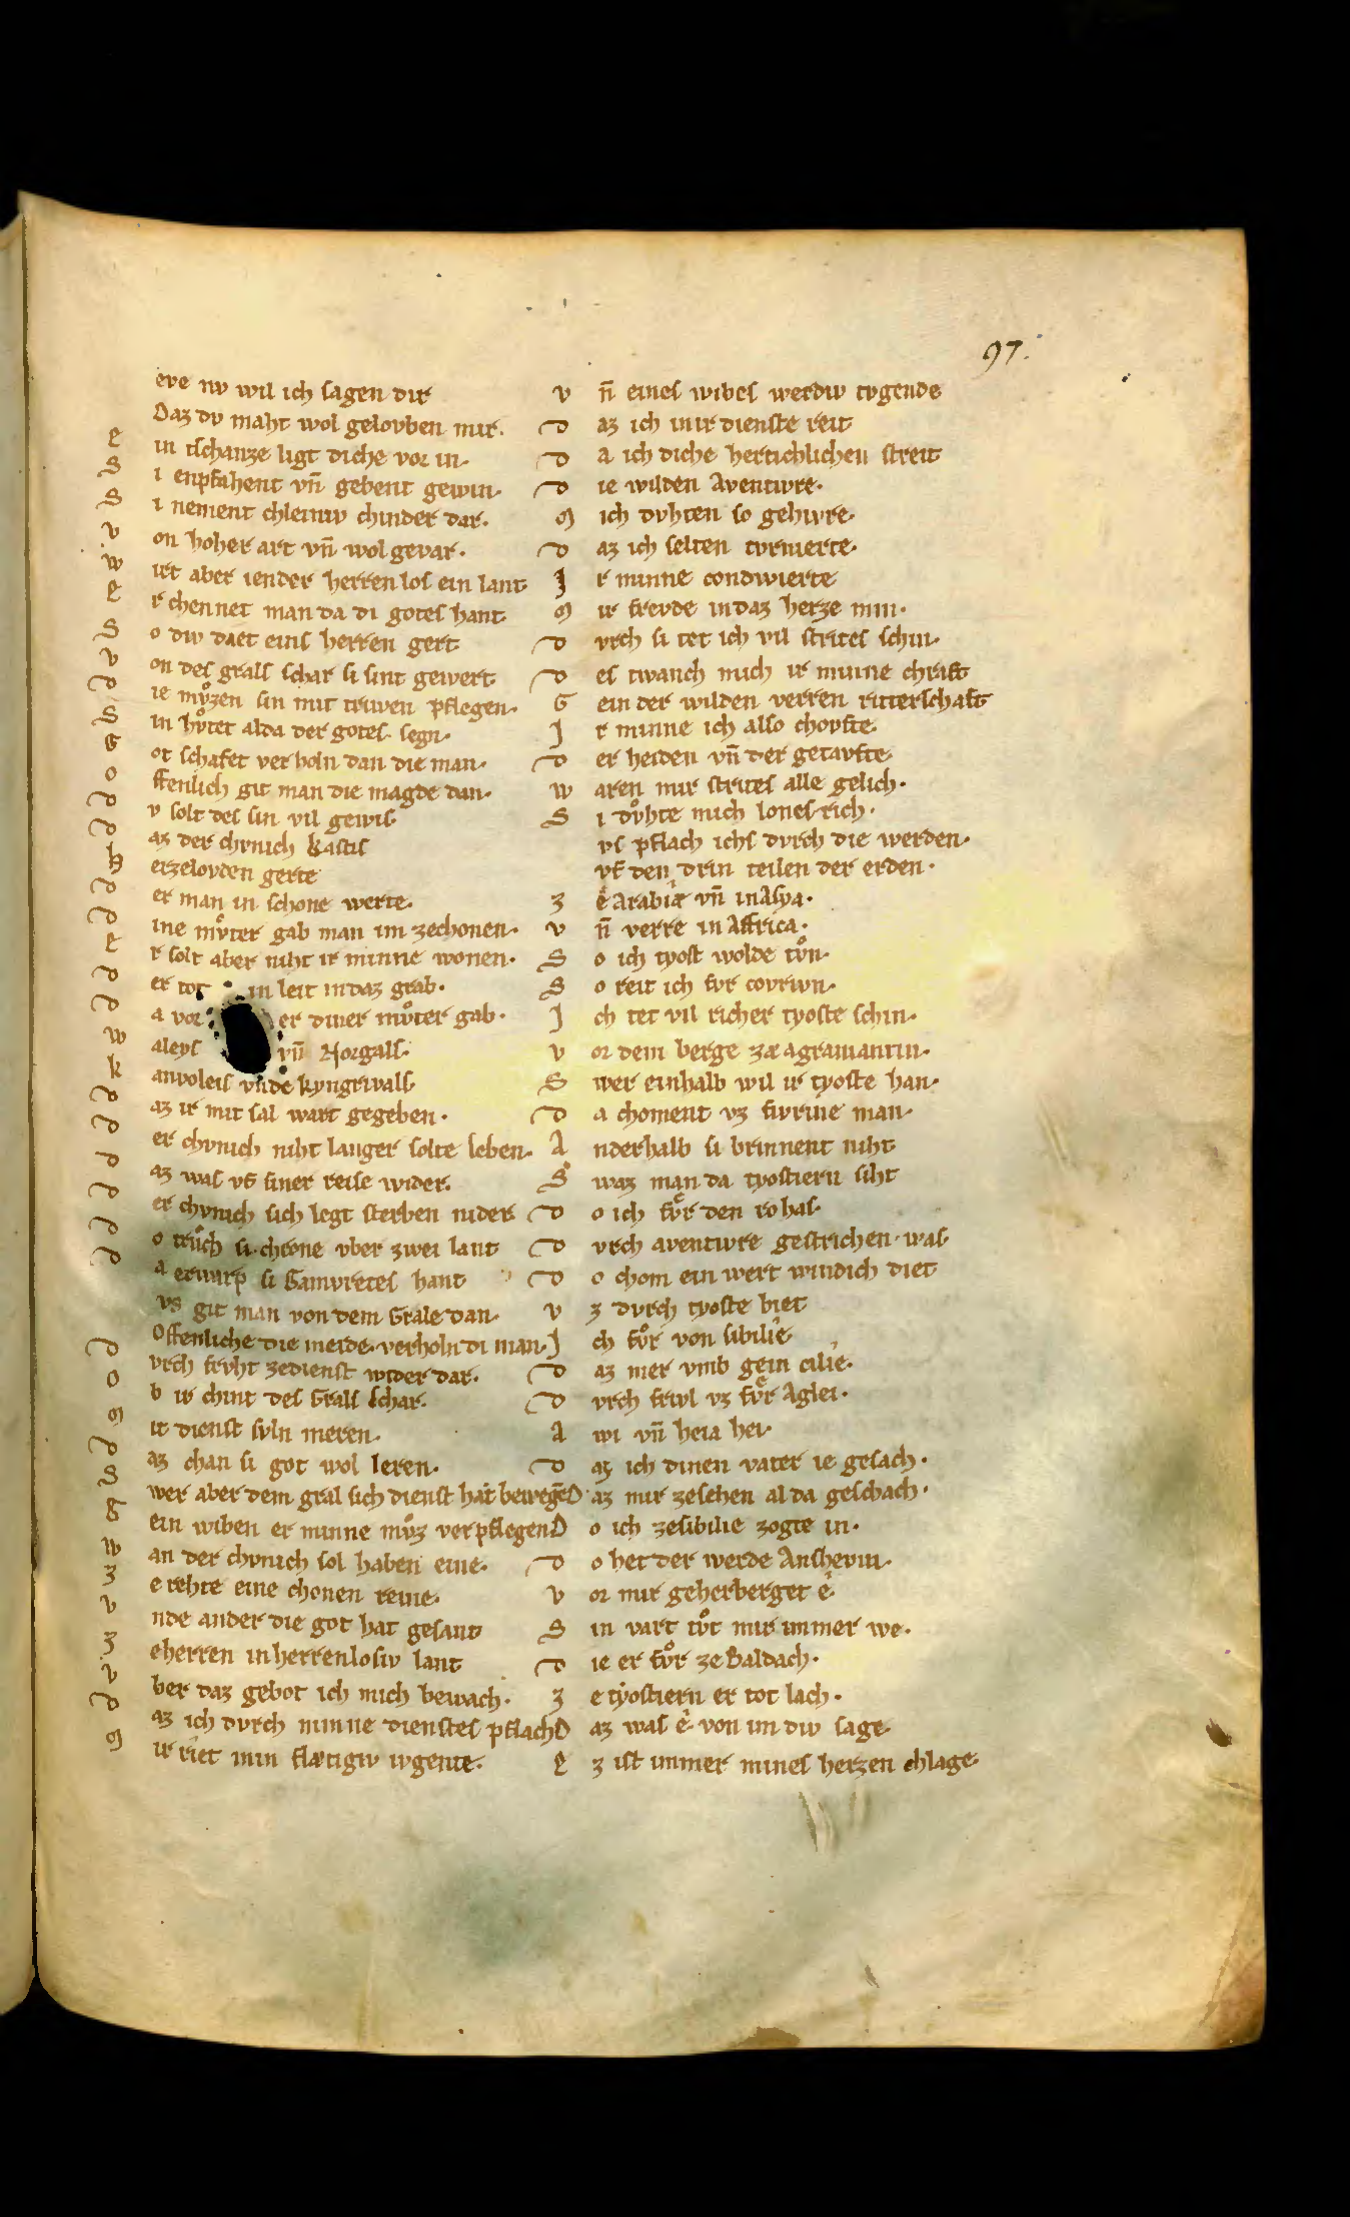 97.
eve nv wil ich sagen dir
Daz dv maht wol gelovben mir.
E in tschanze ligt diche vor in.
S i enpfahent vn̄ gebent gewin.
S i nement chleiniv chinder dar.
v on hoher art vn̄ wol gevar.
w irt aber iender herren los ein lant
E r chennet man da di gotes hant
S o div diet eins herren gert
v on des grals schar si sint gewert
D ie mvͦzen sin mit triwen pflegen.
S in hvͦtet alda der gotes segn.
G ot schafet verholn dan die man.
o ffenlich git man die magde dan.
D v solt des sin vil gewis
D az der chvnich kastis
H erzelovden gerte
D er man in schone werte.
D ine mvͦter gab man im zechonen.
E r solt aber niht ir minne wonen.
D er tot in leit indaz grab.
D a vor er diner mvͦter gab.
w aleys vn̄ Norgals.
k anvoleis vnde kyngrivals
D az ir mit sal wart gegeben.
D er chvnich niht langer solte leben.
D az was vf siner reise wider.
D er chvnich sich legt sterben nider
D o trvͦch si chrone vber zwei lant
D a erwarp si Gamvretes hant
vs git man von dem Grale dan.
Offenliche die meide. verholn di man.
D vrch frvht zedienst wider dar.
o b ir chint des Grals schar.
M it dienst svln meren.
D az chan si got wol leren.
S wer aber dem gral sich dienst hat bewegē
G ein wiben er minne mvͦz verpflegen
w an der chvnich sol haben eine.
Z e rehte eine chonen reine.
v nde ander die got hat gesant
Z eherren inherrenlosiv lant
v ber daz gebot ich mich bewach.
D az ich dvrch minne dienstes pflach
M ir riet min flætigiv ivgente.
v n̄ eines wibes werdiv tvgende
D az ich inir dienste reit
D a ich diche hertichlichen streit
D ie wilden Aventivre.
M ich dvhten so gehivre.
D az ich selten tvrnierte.
I r minne condwierte
M ir frevde indaz herze min.
D vrch si tet ich vil strites schin.
D es twanch mich ir minne chraft
G ein der wilden verren ritterschaft
I r minne ich also chovfte.
D er heiden vn̄ der getavfte.
w aren mir strites alle gelich.
S i dvͦhte mich lones rich.
vs pflach ichs dvrch die werden.
vf den drin teilen der erden.
Z e Arabiæ vn̄ inAsya.
v n̄ verre in Affrica.
S o ich tyost wolde tvͦn.
S o reit ich fvr covrivn.
I ch tet vil richer tyoste schin.
v or dem berge zæ agramantin.
S wer einhalb wil ir tyoste han.
D a choment vz fivrine man.
A nderhalb si brinnent niht
S waz man da tyostiern siht
D o ich fvͤr den rohas.
D vrch aventivre gestrichen was
D o chom ein wert windich diet
v z dvrch tyoste biet
I ch fvͦr von sibilie
D az mer vmb gein cilie.
D vrch frivl vz fvͤr Aglei.
A wi vn̄ heia hei.
D az ich dinen vater ie gesach.
D az mir zesehen al da geschach.
D o ich zesibilie zogte in.
D o het der werde Anshevin.
v or mir geherberget e.
S in vart tvͦt mir immer we.
D ie er fvͦr ze Baldach.
Z e tyostiern er tot lach.
D az was e von im div sage
E z ist immer mines herzen chlage.